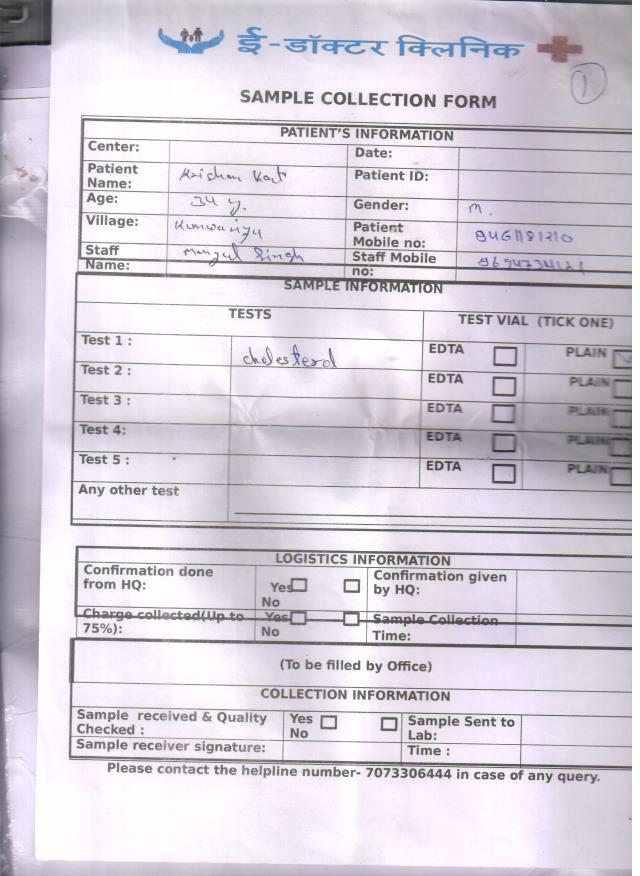 ई-डॉक्टर क्लिनिक
1
SAMPLE COLLECTION FORM
PATIENT'S INFORMATION
Center: Date:
Patient Name: Krishan Kant Patient ID:
Age: 34 y. Gender: M.
Village: Kunwariya Patient Mobile no:
Staff Name: Mangul Singh Staff Mobile no:
SAMPLE INFORMATION
TESTS TEST VIAL (TICK ONE)
Test 1 : cholesterol EDTA PLAIN
Test 2 : EDTA PLAIN
Test 3 : EDTA PLAIN
Test 4: EDTA PLAIN
Test 5 : EDTA PLAIN
Any other test
LOGISTICS INFORMATION
Confirmation done from HQ: Yes No Confirmation given by HQ:
Charge collected(Up to 75%): Yes No Sample Collection Time:
(To be filled by Office)
COLLECTION INFORMATION
Sample received & Quality Checked : Yes No Sample Sent to Lab:
Sample receiver signature: Time :
Please contact the helpline number- 7073306444 in case of any query.